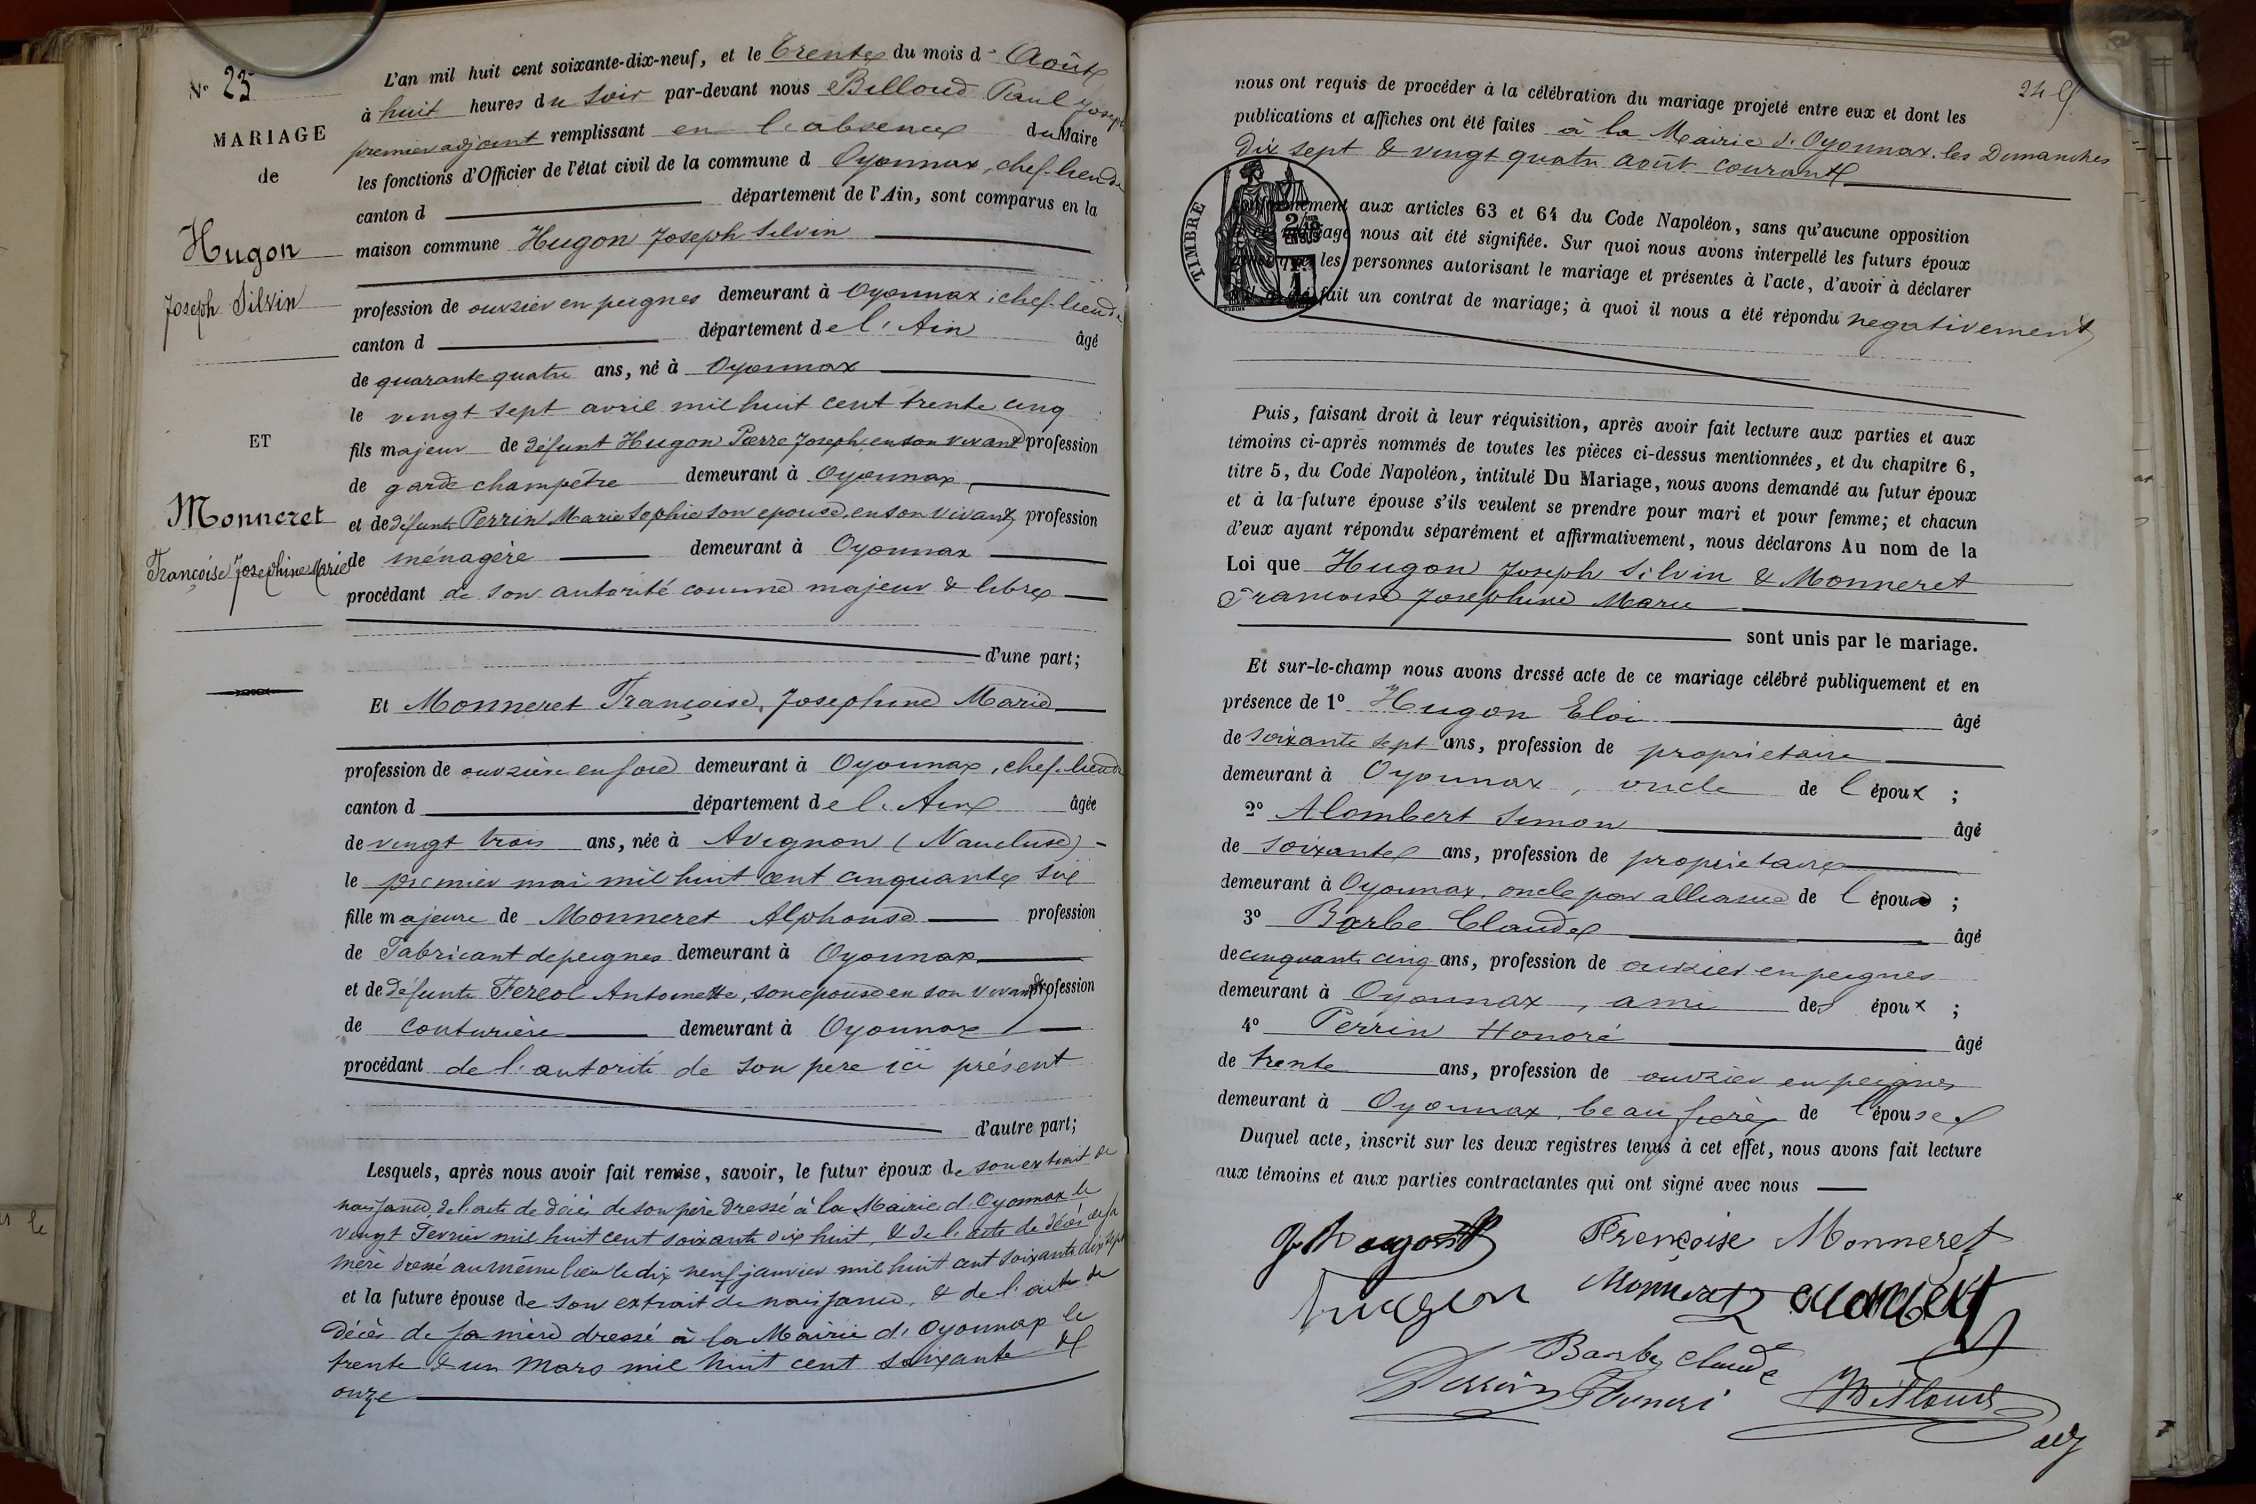 N° 23
MARIAGE
de
Hugon
Joseph Silvin
ET
Monneret
Françoise Josephine Marie
L'an mil huit cent soixante-dix-neuf, et le trente du mois d' Août
à huit heures du soir par-devant nous Billoud Paul Joseph
premier adjoint remplissant en l'absence du Maire
les fonctions d'Officier de l'état civil de la commune d Oyonnax, chef-lieu de
canton d département de l'Ain, sont comparus en la
maison commune Hugon Joseph Silvin
profession de ouvrier en peignes demeurant à Oyonnax, chef-lieu de
canton d département de l'Ain âgé
de quarante quatre ans, né à Oyonnax
le vingt sept avril mil huit cent trente cinq
fils majeur de défunt Hugon Pierre Joseph, en son vivant profession
de garde champêtre demeurant à Oyonnax,
et de défunte Perrin Marie Sophie son epouse, en son vivant, profession
de ménagère demeurant à Oyonnax
procédant de son autorité comme majeur & libre
d'une part;
Et Monneret Françoise, Josephine Marie
profession de ouvrière en soie demeurant à Oyonnax, chef-lieu de
canton d département de l'Ain âgée
de vingt trois ans, née à Avignon (Vaucluse)
le premier mai mil huit cent cinquante six
fille majeure de Monneret Alphonse profession
de Fabricant de peignes demeurant à Oyonnax
et de défunte Fereol Antoinette, son epouse en son vivant profession
de couturière demeurant à Oyonnax
procédant de l'autorité de son pere ici présent
d'autre part;
Lesquels, après nous avoir fait remise, savoir, le futur époux de son extrait de
naissance, de l'acte de décès de son père dressé à la Mairie d'Oyonnax le
vingt Fevrier mil huit cent soixante dix huit, & de l'acte de décès de sa
mère dressé au même lieu le dix neuf janvier mil huit cent soixante dix sept
et la future épouse de son extrait de naissance, & de l'acte de
décès de sa mère dressé à la Mairie d'Oyonnax le
trente & un Mars mil huit cent soixante &
onze
nous ont requis de procéder à la célébration du mariage projeté entre eux et dont les
publications et affiches ont été faites à la Mairie d'Oyonnax, les Dimanches
dix sept & vingt quatre août courant
TIMBRE
aux articles 63 et 64 du Code Napoléon, sans qu'aucune opposition
nous ait été signifiée. Sur quoi nous avons interpellé les futurs époux
les personnes autorisant le mariage et présentes à l'acte, d'avoir à déclarer
fait un contrat de mariage; à quoi il nous a été répondu negativement
Puis, faisant droit à leur réquisition, après avoir fait lecture aux parties et aux
témoins ci-après nommés de toutes les pièces ci-dessus mentionnées, et du chapitre 6,
titre 5, du Code Napoléon, intitulé Du Mariage, nous avons demandé au futur époux
et à la future épouse s'ils veulent se prendre pour mari et pour femme; et chacun
d'eux ayant répondu séparément et affirmativement, nous déclarons Au nom de la
Loi que Hugon Joseph Silvin & Monneret
Francoise Josephine Marie
sont unis par le mariage.
Et sur-le-champ nous avons dressé acte de ce mariage célébré publiquement et en
présence de 1° Hugon Eloi âgé
de soixante sept ans, profession de proprietaire
demeurant à Oyonnax, oncle de l'époux ;
2° Alombert Simon âgé
de soixante ans, profession de proprietaire
demeurant à Oyonnax, oncle par alliance de l'épou ;
3° Barbe Claude âgé
de cinquante cinq ans, profession de ouvrier en peignes
demeurant à Oyonnax, ami des époux ;
4° Perrin Honoré âgé
de trente ans, profession de ouvrier en peignes
demeurant à Oyonnax, beau frère de l'épouse
Duquel acte, inscrit sur les deux registres tenus à cet effet, nous avons fait lecture
aux témoins et aux parties contractantes qui ont signé avec nous
Françoise Monneret
hugon Monneret
Barbe Claude
Perrin Honoré Billoud
adj